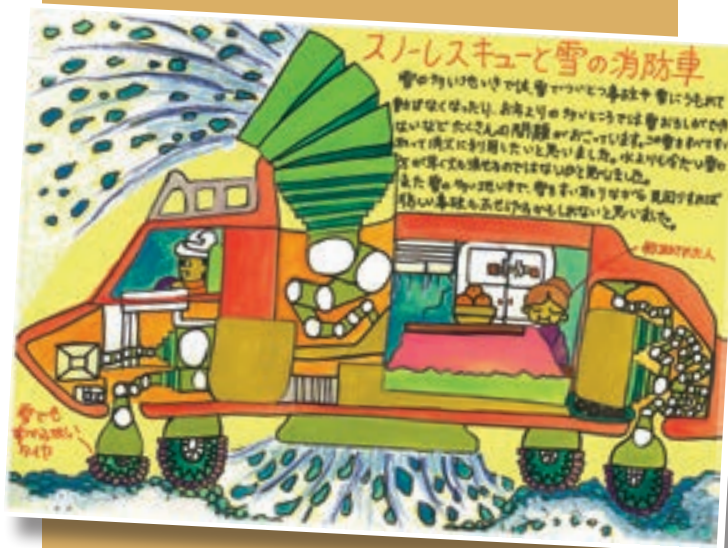 スノーレスキューと雪の消防車
雪の多い地いきでは、雪でついとつ事故や雪にうもれて
動けなくなったり、お年よりの多いところでは雪おろしができ
ないなどたくさんの問題がおこっています。この雪をすべてすい
取って消火に利用したいと思いました。水よりも冷たい雪の
が早く火も消せるのではないかと思いました。
また雪の多い地いきで、雪をすい取りながら見回りすれば
悲しい事故もふせげるかもしれないと思いました。
救助された人
雪でも
すべらない
タイヤ